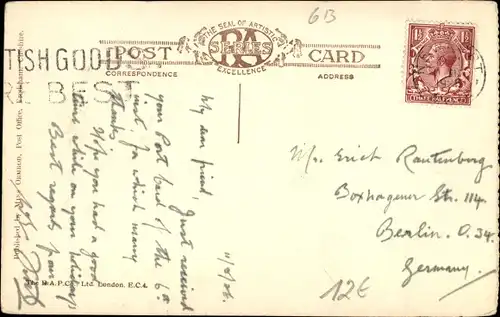 6B
TISH GOOD
BEST
THE SEAL OF ARTISTIC
EXCELLENCE
POST
RA
SERIES
CARD
CORRESPONDENCE
ADDRESS
11/8/26.
My dear friend,
Just received
your Post Card of the 6th
inst. for which many
thanks
Hope you had a good
time while on your holidays
Best regards from
Mr Erich Rautenburg
Boxhagener Str. 114.
Berlin. O. 34.
Germany.
12€
Published by Mrs. Post Office,
The R.A.P.Co. Ltd. London. E.C.4.